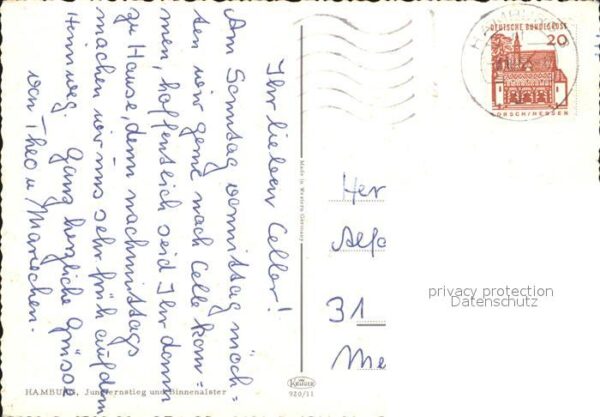 Ihr lieben Celler!
Am Sonntag vormittag möch=
ten wir gerne nach Celle kom=
men, hoffentlich seid Ihr dann
zu Hause, denn nachmittags
machen wir uns sehr früh auf den
Heimweg. Ganz herzliche Grüsse
von Theo u. Mariechen.
Made in Western Germany
HAMBURG, Jungfernstieg und Binnenalster
KRÜGER
920/11
DEUTSCHE BUNDESPOST
20
LORSCH/HESSEN
Her
Alfo
31
Me
privacy protection
Datenschutz